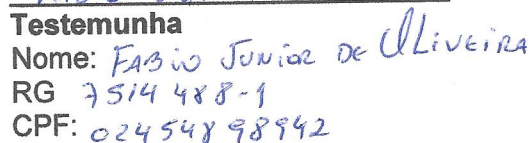 Testemunha
Nome: FABIO JUNIOR DE OLIVEIRA
RG 7514 488-1
CPF: 024548 98942